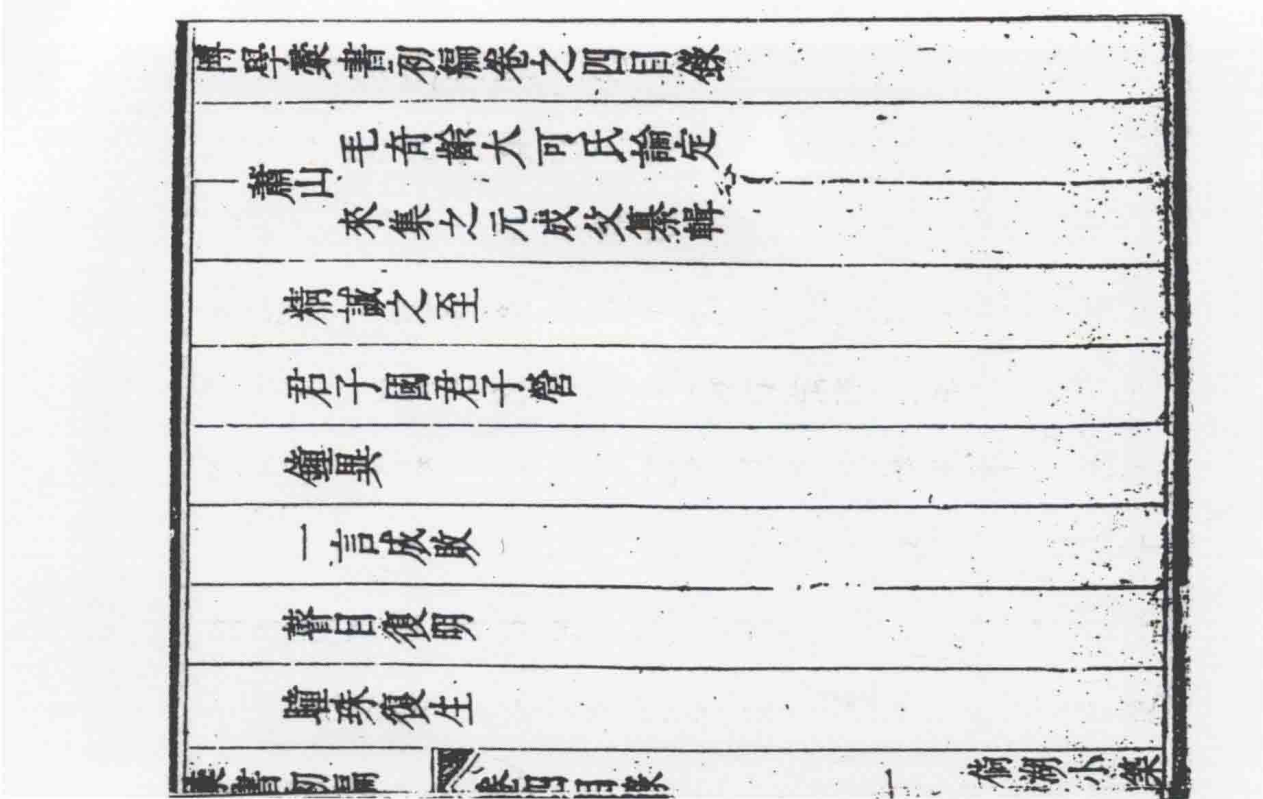 博學彙書初編卷之四目錄
蕭山
毛奇齡大可氏論定
來集之元成父纂輯
精誠之至
君子國君子營
鐘異
一言成敗
瞽目復明
瞳珠復生
彙書初編 卷四目錄 一 倘湖小築